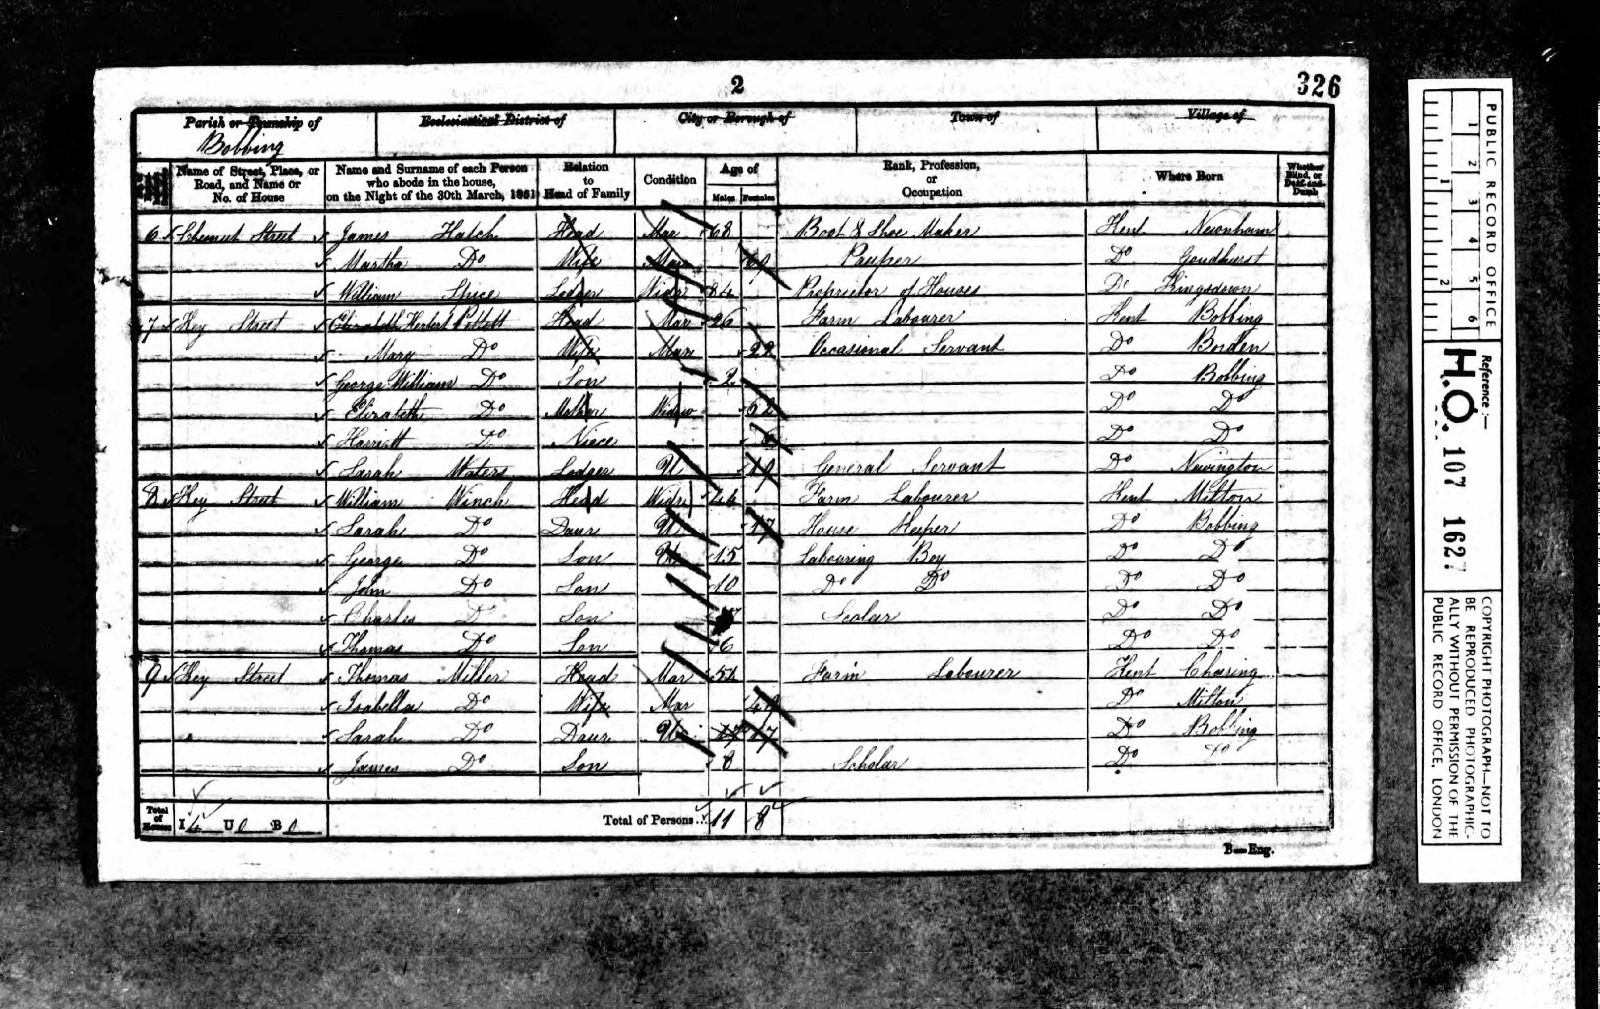 2
326
Parish or Township of Ecclesiastical District of City or Borough of Town of Village of
Bobbing
Name of Street, Place, or Road, and Name or No. of House Name and Surname of each Person who abode in the house, on the Night of the 30th March, 1851 Relation to Head of Family Condition Age of Males Females Rank, Profession, or Occupation Where Born Whether Blind, or Deaf-and-Dumb
6 Chesnut Street James Hatch Head Mar 68 Boot & Shoe Maker Kent Newnham
Martha Do Wife Mar Pauper Do Goudhurst
William Spice Lodger Widr 84 Proprietor of Houses Do Kingsdown
7 Key Street Elizabeth Herbert Head Mar 26 Farm Labourer Kent Bobbing
Mary Do Wife Mar 22 Occasional Servant Do Borden
George William Do Son 2 Do Bobbing
Elizabeth Do Mother Widow 62 Do Do
Harriett Do Niece 6 Do Do
Sarah Waters Lodger U 19 General Servant Do Newington
8 Key Street William Winch Head Widr 44 Farm Labourer Kent Milton
Sarah Do Daur U 17 House Keeper Do Bobbing
George Do Son U 15 Labouring Boy Do Do
John Do Son 10 Do Do Do Do
Charles D Son Scolar Do Do
Thomas Do Son 6 Do Do
9 Key Street Thomas Miller Head Mar 54 Farm Labourer Kent
Isabella Do Wife Mar 49 Do Milton
Sarah Do Daur U 17 17 Do Bobbing
James Do Son 8 Scholar Do Do
Total of Houses I 4 U 0 B 0 Total of Persons 11 8
B—Eng.
PUBLIC RECORD OFFICE
1 2 3 4 5 6
1 2
Reference:—
H.O. 107 1627
COPYRIGHT PHOTOGRAPH—NOT TO
BE REPRODUCED PHOTOGRAPHIC-
ALLY WITHOUT PERMISSION OF THE
PUBLIC RECORD OFFICE, LONDON